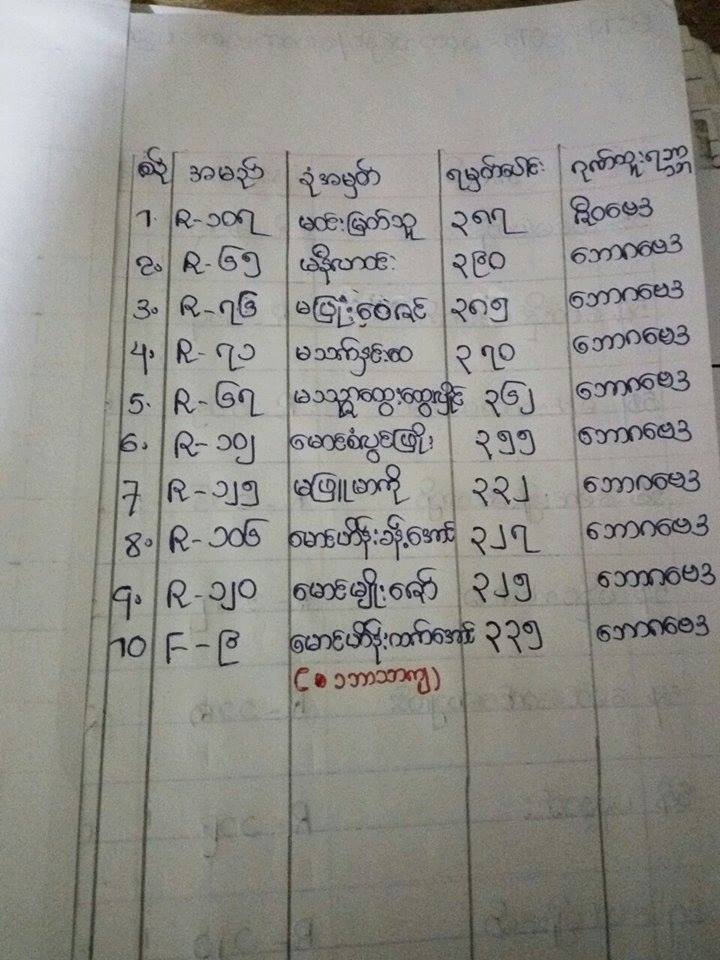 စဉ် အမည် ခုံအမှတ် ရမှတ်ပေါင်း ဂုဏ်ထူးရဘာသာ
1. R-၁၀၇ မဝင်းမြတ်သူ ၃၈၇ ဇီဝဗေဒ
2. R-၆၅ မနီလာဝင်း ၃၉၀ ဘောဂဗေဒ
3. R-၇၆ မဖြိုးဝေခင် ၃၈၅ ဘောဂဗေဒ
4. R-၇၁ မသက်နှင်းဝေ ၃၇၀ ဘောဂဗေဒ
5. R-၆၇ မသန္တာထွေးထွေးလှိုင် ၃၆၂ ဘောဂဗေဒ
6. R-၁၀၂ မောင်စံလွင်ဖြိုး ၃၅၅ ဘောဂဗေဒ
7 R-၁၂၅ မဖြူမာကို ၃၃၂ ဘောဂဗေဒ
8. R-၁၀၆ မောင်ဟိန်းခန့်အောင် ၃၂၇ ဘောဂဗေဒ
9. R-၁၂၀ မောင်မျိုးဇော် ၃၂၅ ဘောဂဗေဒ
10 F-၉ မောင်ဟိန်းထက်အောင် ၃၃၅ ဘောဂဗေဒ
(၁ဘာသာကျ)